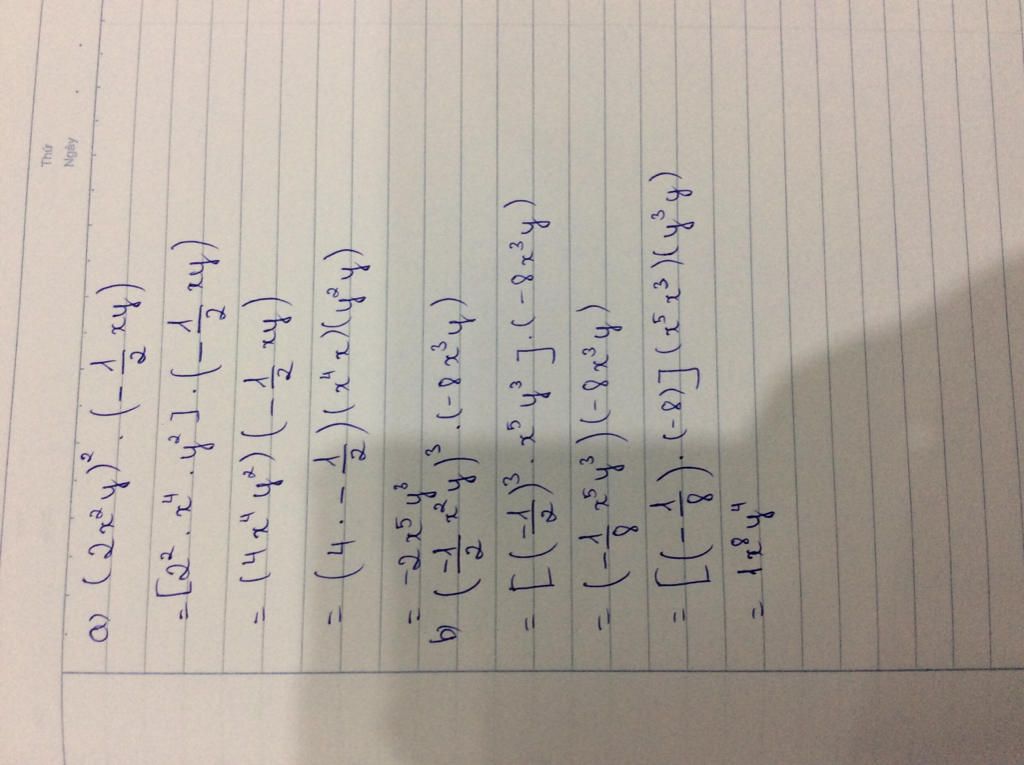 Thứ
Ngày
a) (2x²y)² . (-1/2 xy)
= [2² . x⁴ . y²] . (-1/2 xy)
= (4x⁴y²)(-1/2 xy)
= (4 . -1/2)(x⁴x)(y²y)
= -2x⁵y³
b) (-1/2 x²y)³ . (-8x³y)
= [(-1/2)³ . x⁵y³] . (-8x³y)
= (-1/8 x⁵y³)(-8x³y)
= [(-1/8) . (-8)](x⁵x³)(y³y)
= 1x⁸y⁴